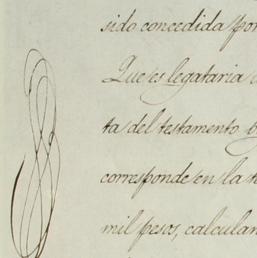 sido concedida por
Que es legataria
ta del testamento
corresponde en la
mil pesos, calculan